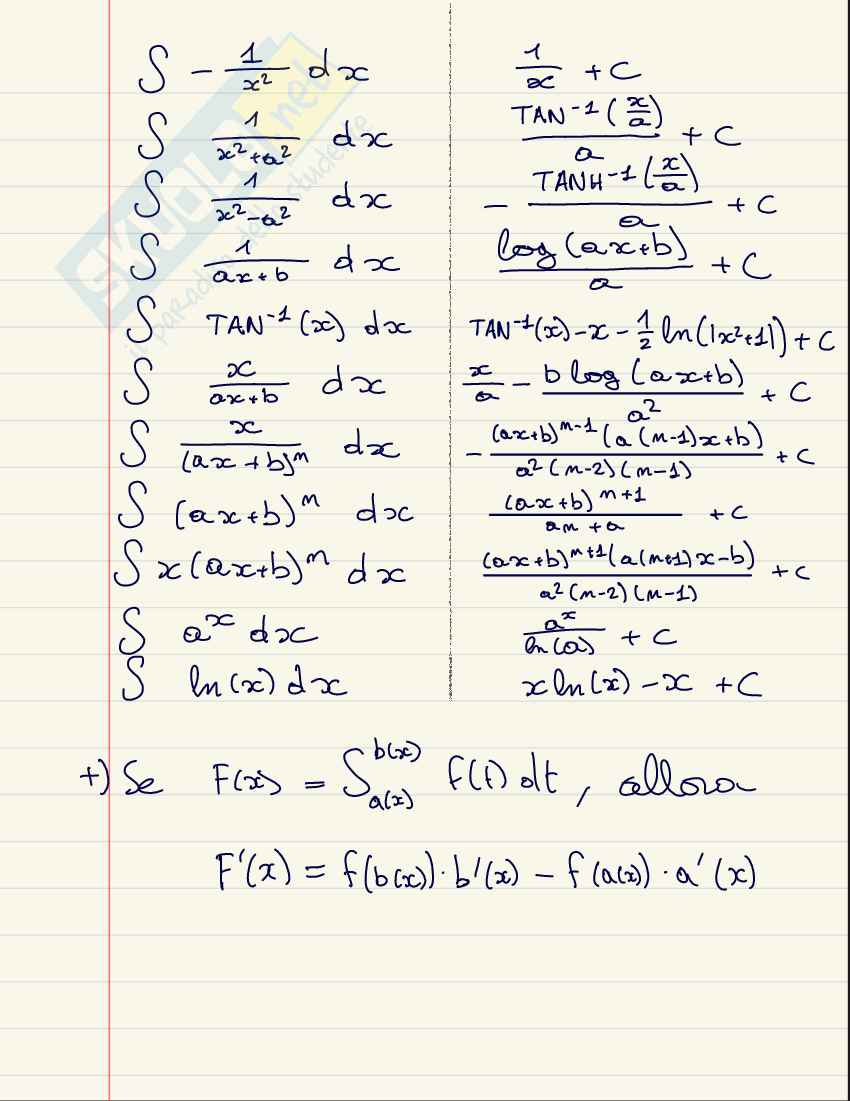 ∫ -1/x² dx    1/x + C
∫ 1/(x²+a²) dx    TAN⁻¹(x/a)/a + C
∫ 1/(x²-a²) dx    - TANH-1(x/a)/a + C
∫ 1/(ax+b) dx    log(ax+b)/a + C
∫ TAN⁻¹(x) dx    TAN⁻¹(x)-x-1/2 ln(|x²+1|)+C
∫ x/(ax+b) dx    x/a - b log(ax+b)/a² + C
∫ x/(ax+b)ⁿ dx    - (ax+b)ⁿ⁻¹(a(n-1)x+b)/a²(n-2)(n-1) + C
∫ (ax+b)ⁿ dx    (ax+b)ⁿ⁺¹/(an+a) + C
∫ x(ax+b)ⁿ dx    (ax+b)ⁿ⁺¹(a(n+1)x-b)/a²(n-2)(n-1) + C
∫ aˣ dx    aˣ/ln(a) + C
∫ ln(x) dx    x ln(x) -x +C
+) Se F(x) = ∫_{a(x)}^{b(x)} f(t) dt, allora
F'(x) = f(b(x))·b'(x) - f(a(x))·a'(x)
SKUOLA.net
il paradiso dello studente